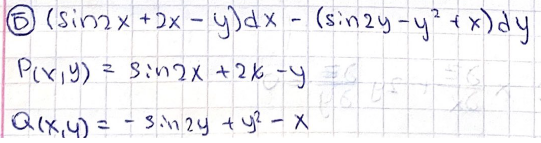 Б) (sin2x + 2x - y)dx - (sin2y - y² + x)dy
P(x,y) = sin2x + 2x - y
Q(x,y) = - sin2y + y² - x